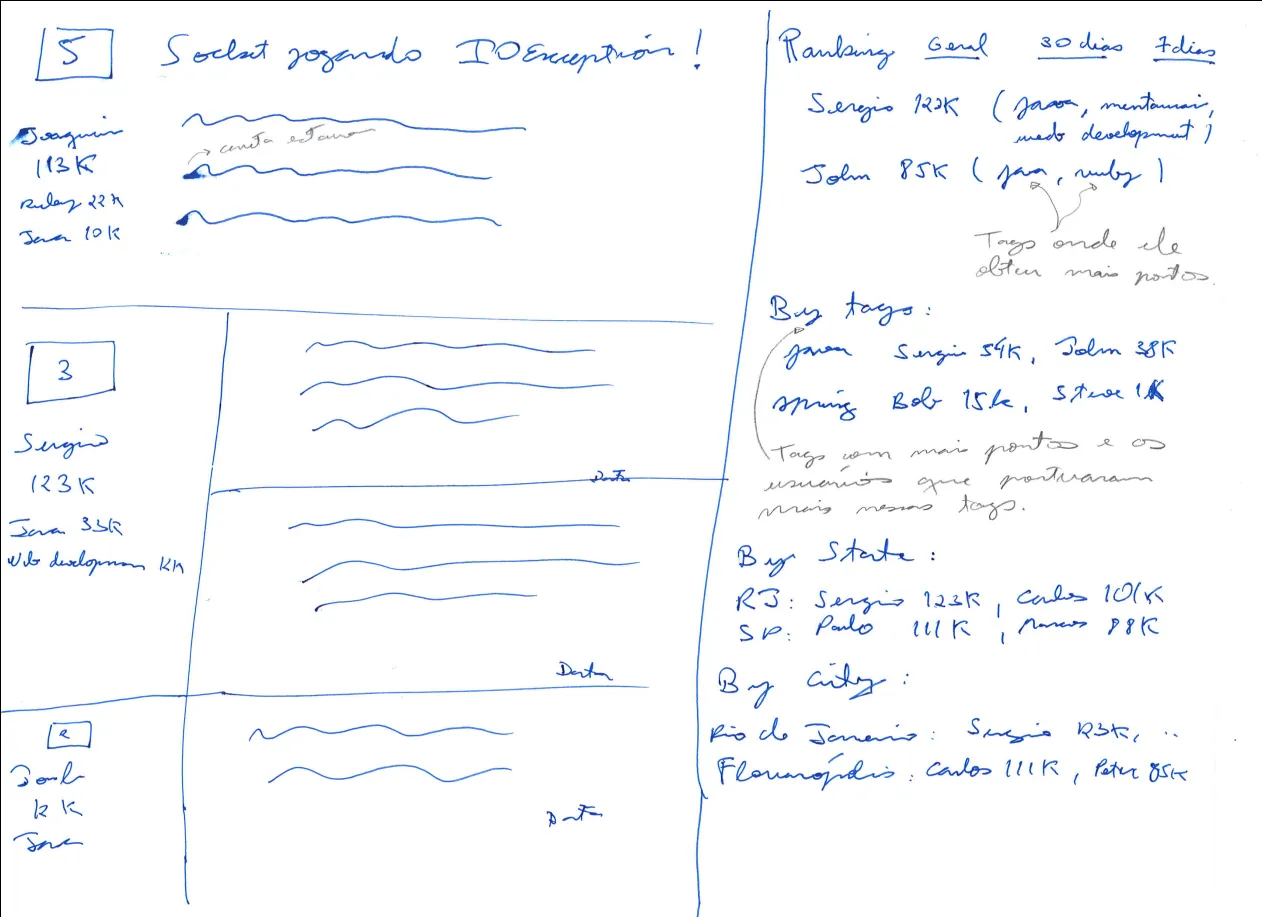 5
Socket jogando IOException!
Joaquim
113K
Ruby 22K
Java 10K
caneta
3
Sergio
123K
Java 33K
Web
Data
Data
2
12K
Java
Data
Ranking Geral 30 dias 7 dias
Sergio 122K (java,
development)
John 85K (java, ruby)
Tags onde ele
obteu mais pontos.
By tags:
java Sergio 54K, John 38K
spring Bob 15k, Steve 1K
Tags com mais pontos e os
usuários que pontuaram
mais nessas tags.
By State:
RJ: Sergio 123K, Carlos 101K
SP: Paulo 111K, Marcos 88K
By City:
Rio de Janeiro: Sergio 123K, ..
Florianópolis: Carlos 111K, Peter 85K